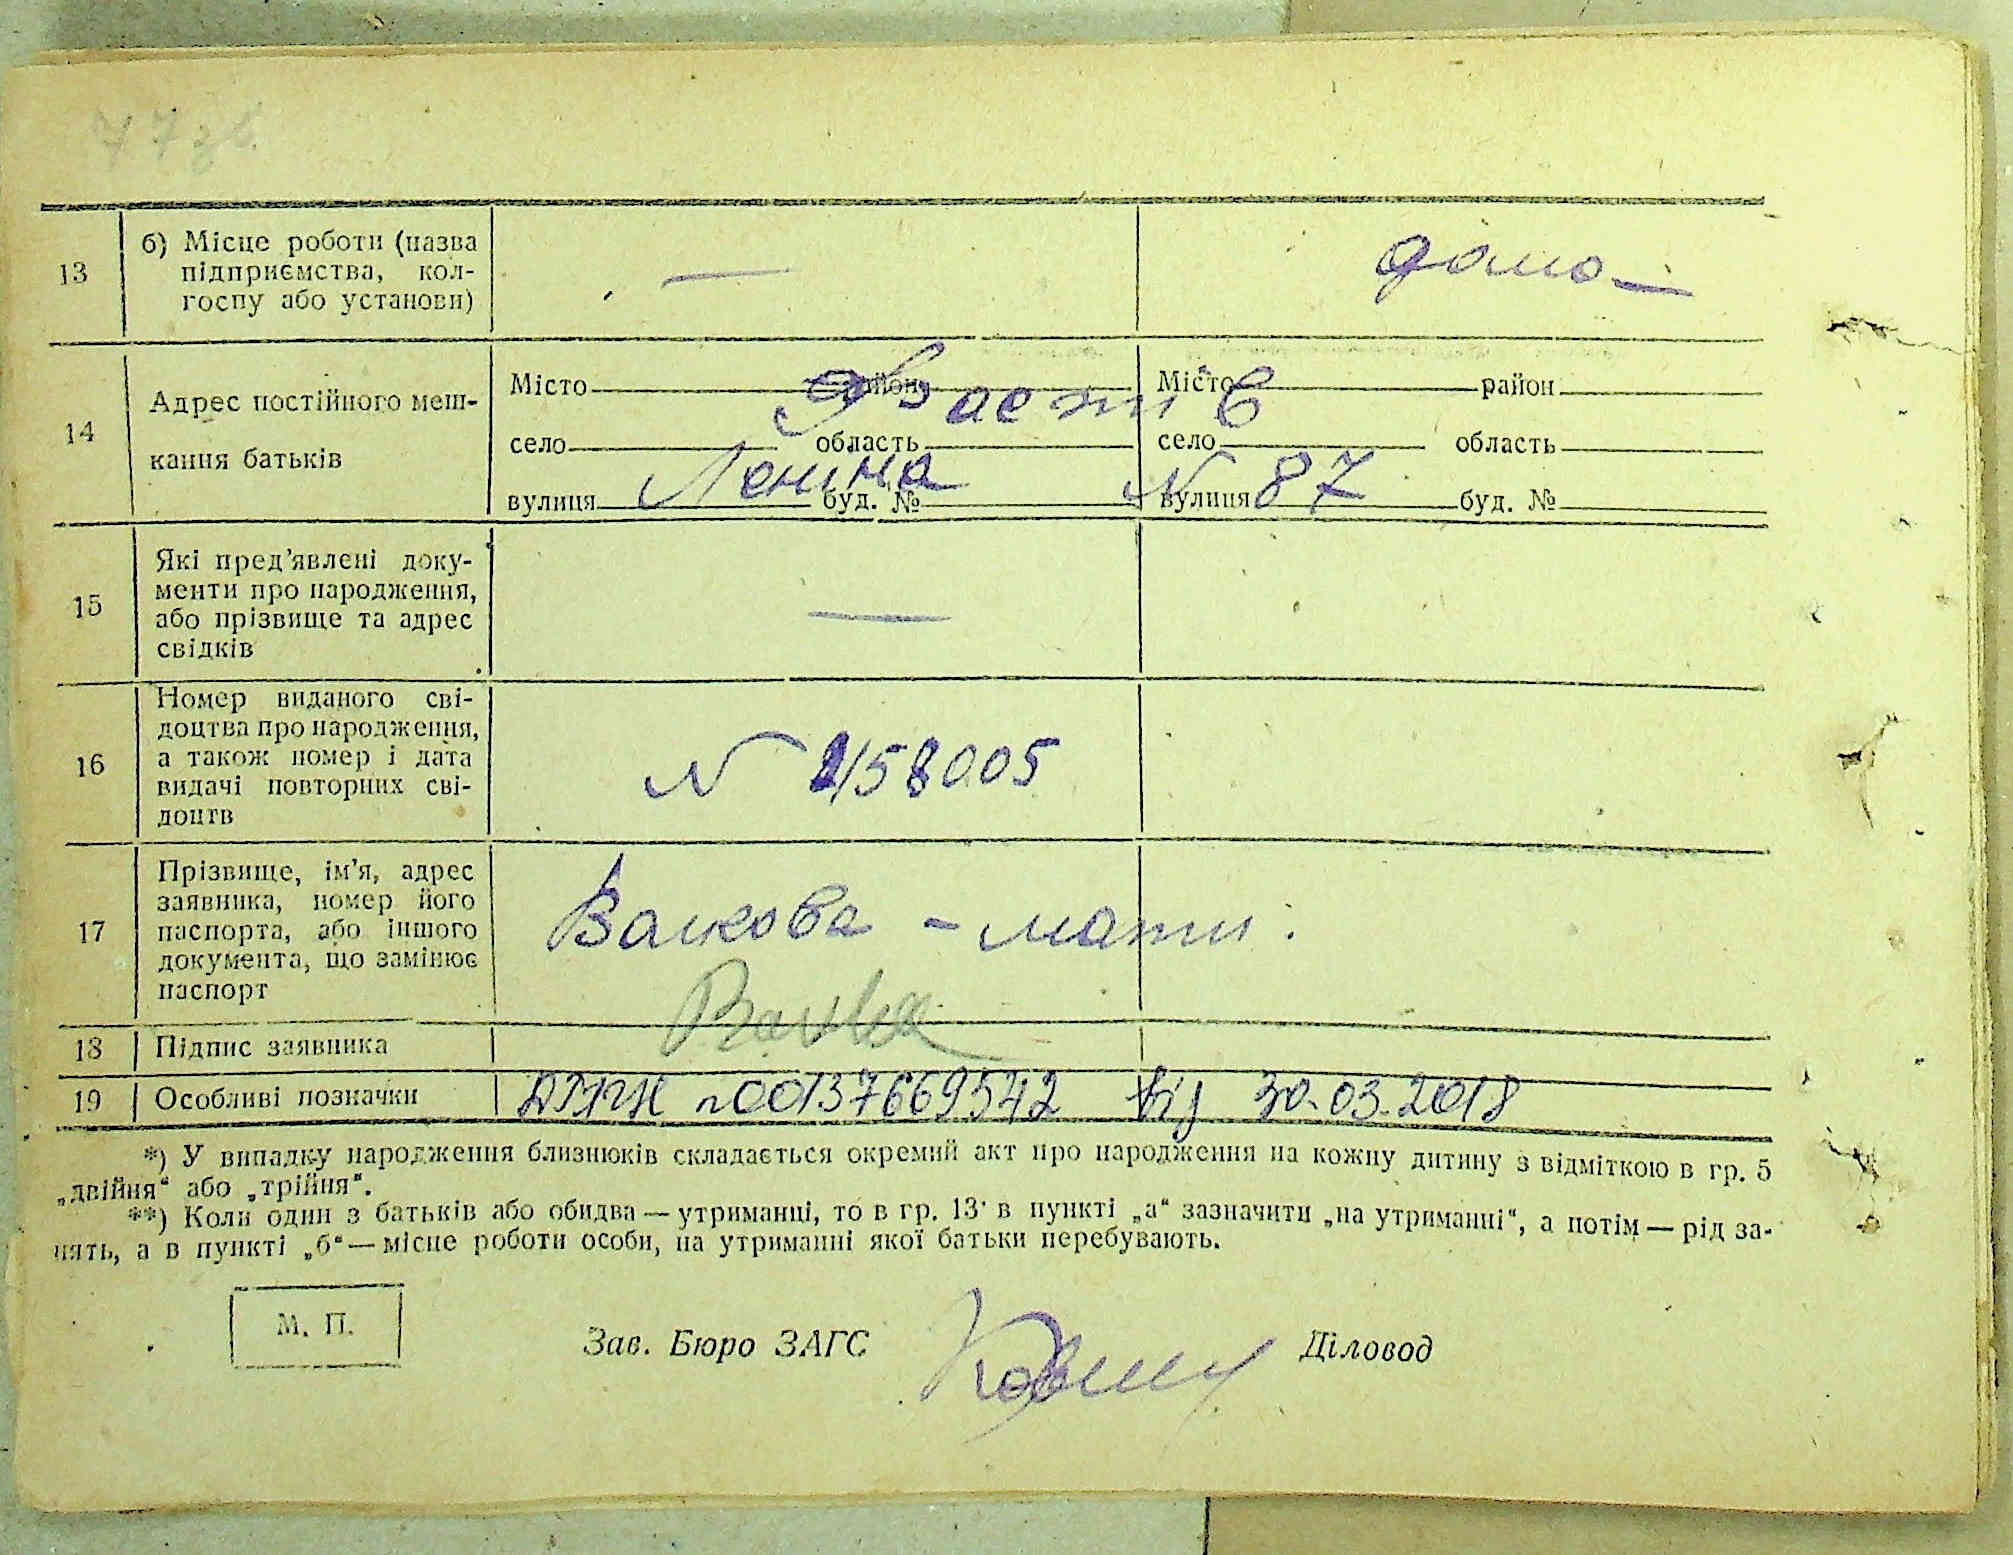 77 зв.
13
б) Місце роботи (назва
підприємства, кол-
госпу або установи)
—
домо —
14
Адрес постійного меш-
кання батьків
Місто район
село область
вулиця буд. №
Місто район
село область
вулиця буд. №
Фастів
Леніна N 87
15
Які пред’явлені доку-
менти про народження,
або прізвище та адрес
свідків
—
16
Номер виданого сві-
доцтва про народження,
а також номер і дата
видачі повторних сві-
доцтв
N 158005
17
Прізвище, ім’я, адрес
заявника, номер його
паспорта, або іншого
документа, що замінює
паспорт
Валкова - мати.
18
Підпис заявника
19
Особливі позначки
ДРАЦС n00137669542 від 30.03.2018
*) У випадку народження близнюків складається окремий акт про народження на кожну дитину з відміткою в гр. 5
„двійня“ або „трійня“.
**) Коли один з батьків або обидва — утриманці, то в гр. 13 в пункті „а“ зазначити „на утриманні“, а потім — рід за-
нять, а в пункті „б“ — місце роботи особи, на утриманні якої батьки перебувають.
М. П.
Зав. Бюро ЗАГС
Діловод